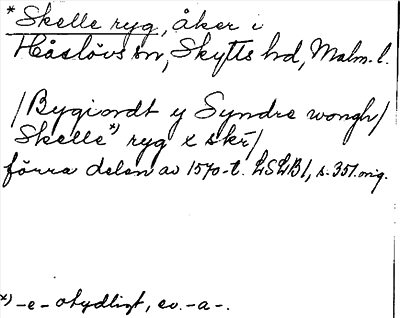 *Skelle ryg, åker i
Håslövs sn, Skytts hd, Malm. l.
/Bygiordt y Syndre wongh/
Skelle*) ryg x skr̄/
förra delen av 1570-t. LSLB1, s. 351. orig.
*) -e- otydligt, ev. -a-.